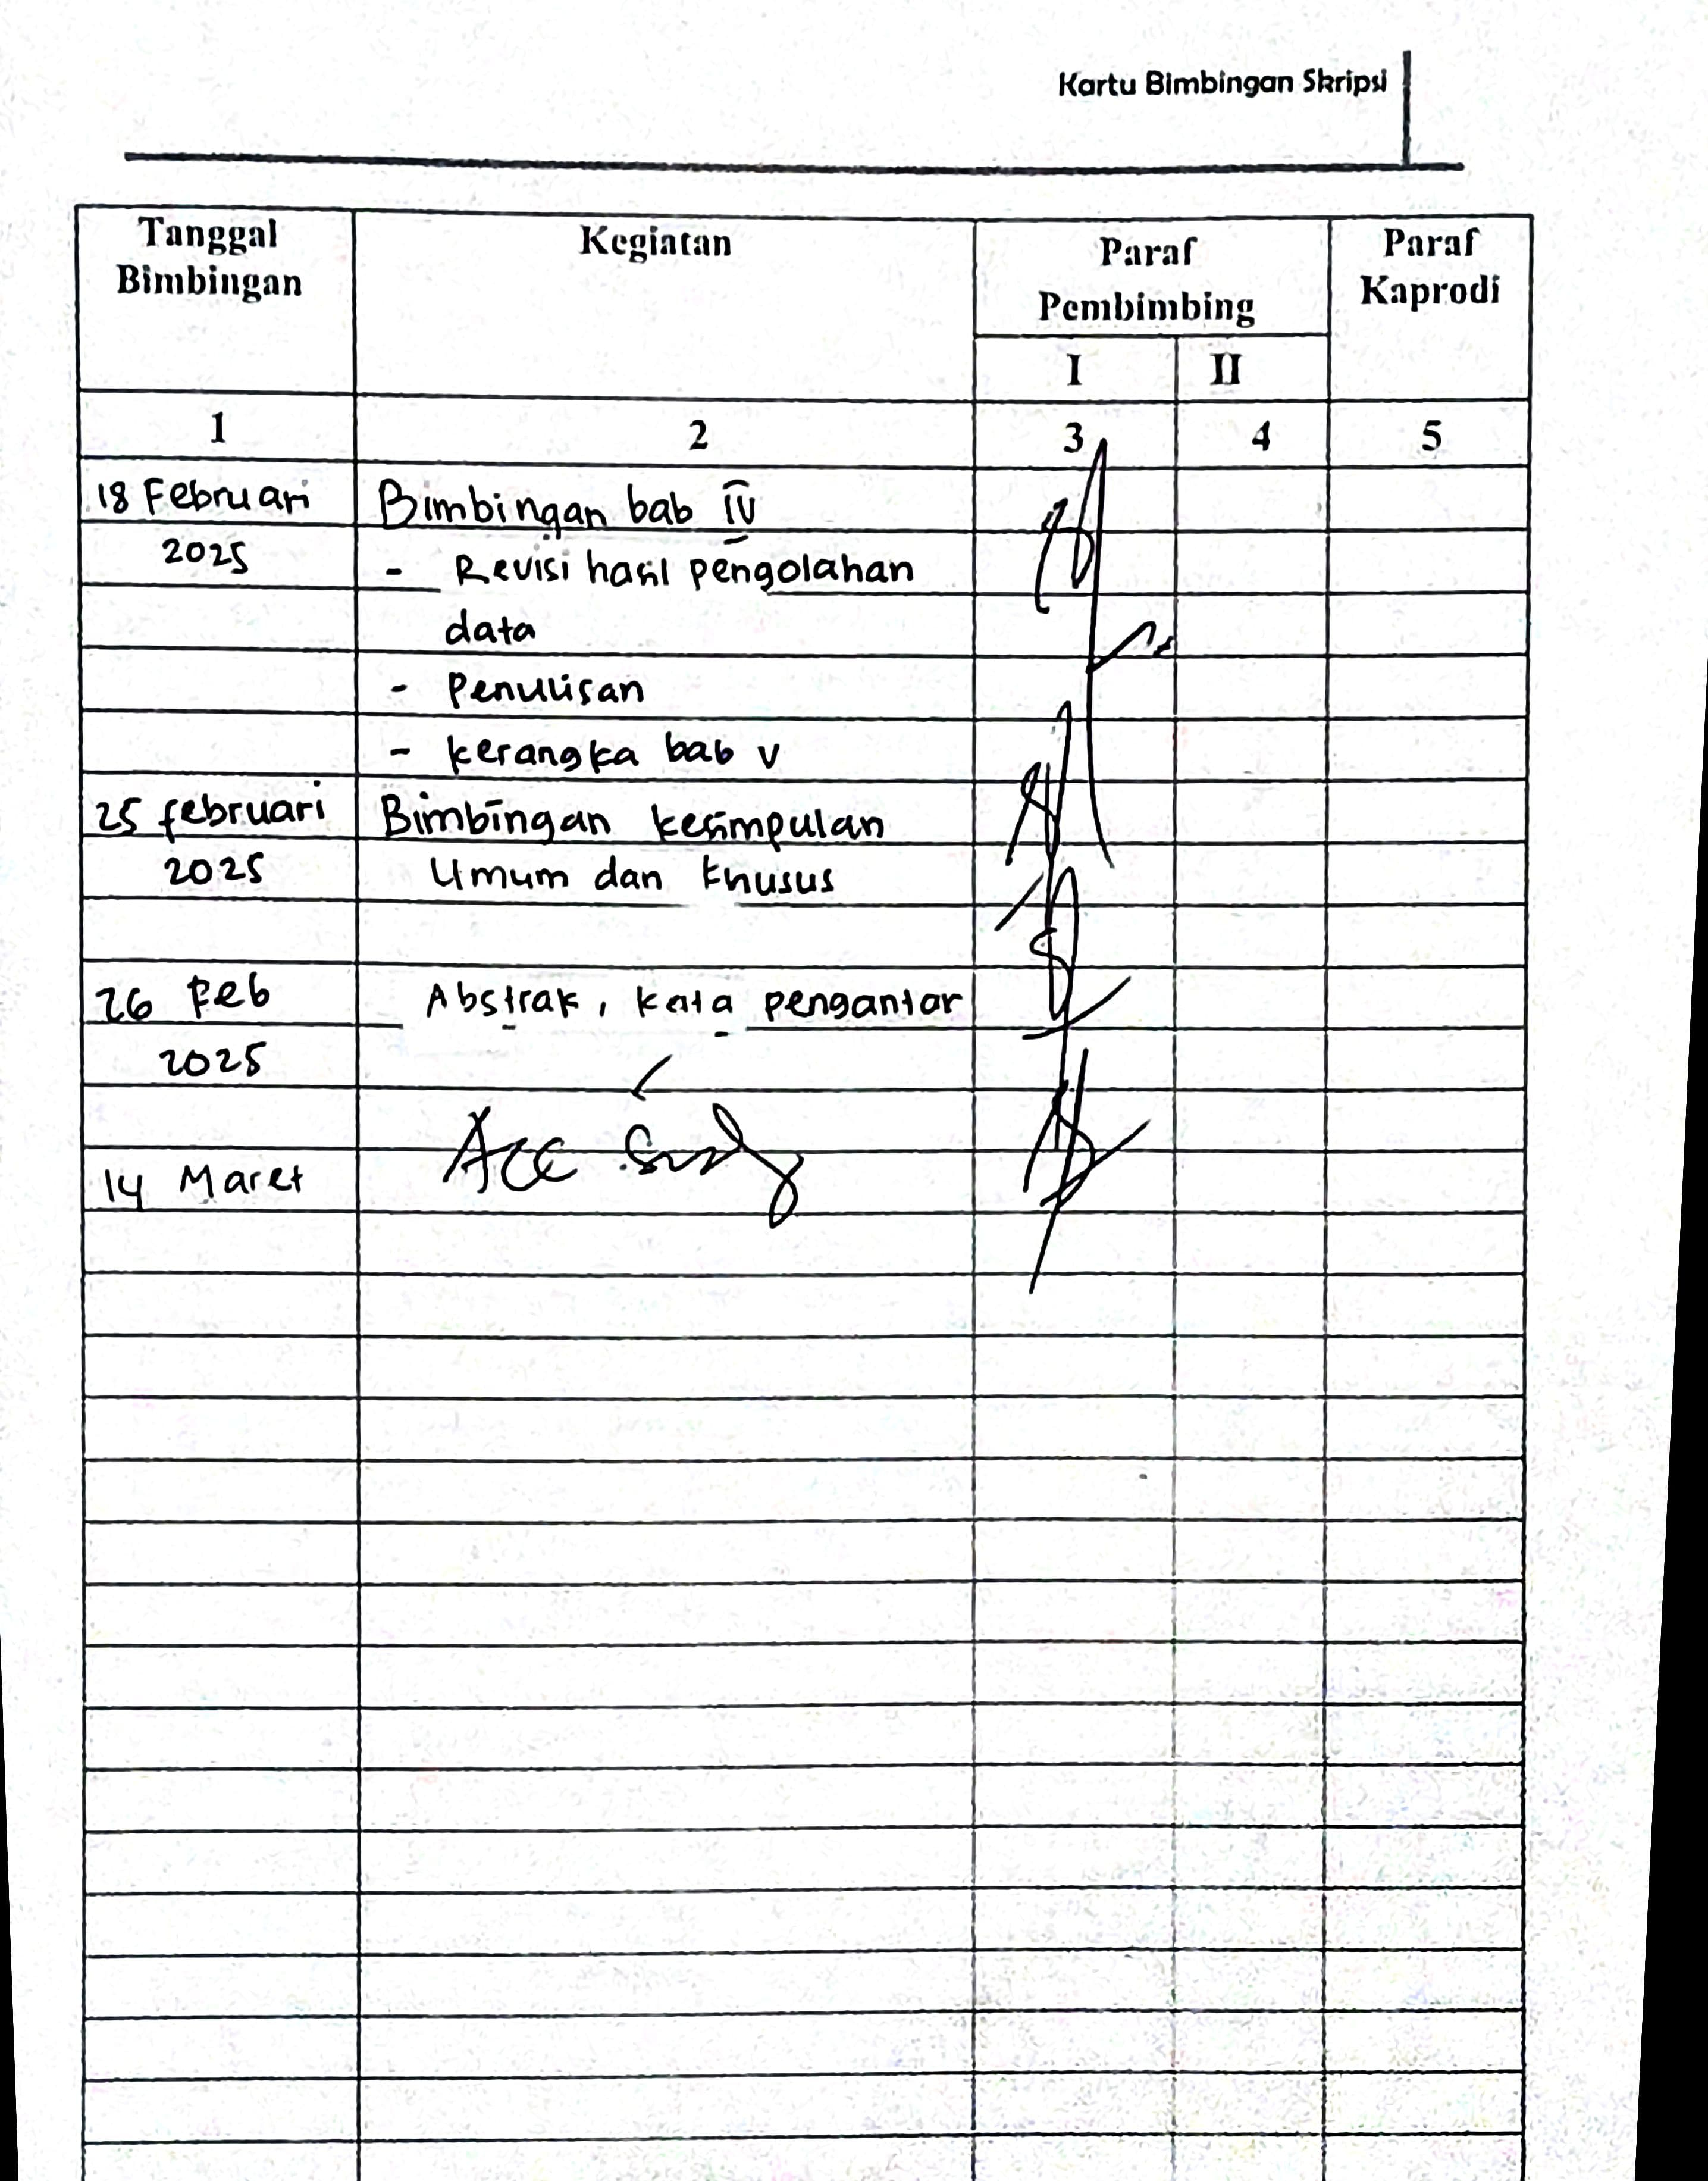 Kartu Bimbingan Skripsi
Tanggal Bimbingan
Kegiatan
Paraf Pembimbing
Paraf Kaprodi
I II
1 2 3 4 5
18 Februari Bimbingan bab IV
2025 - Revisi hasil pengolahan
data
- Penulisan
- kerangka bab V
25 februari Bimbingan kesimpulan
2025 Umum dan khusus
26 Feb Abstrak, kata pengantar
2025
14 Maret Acc